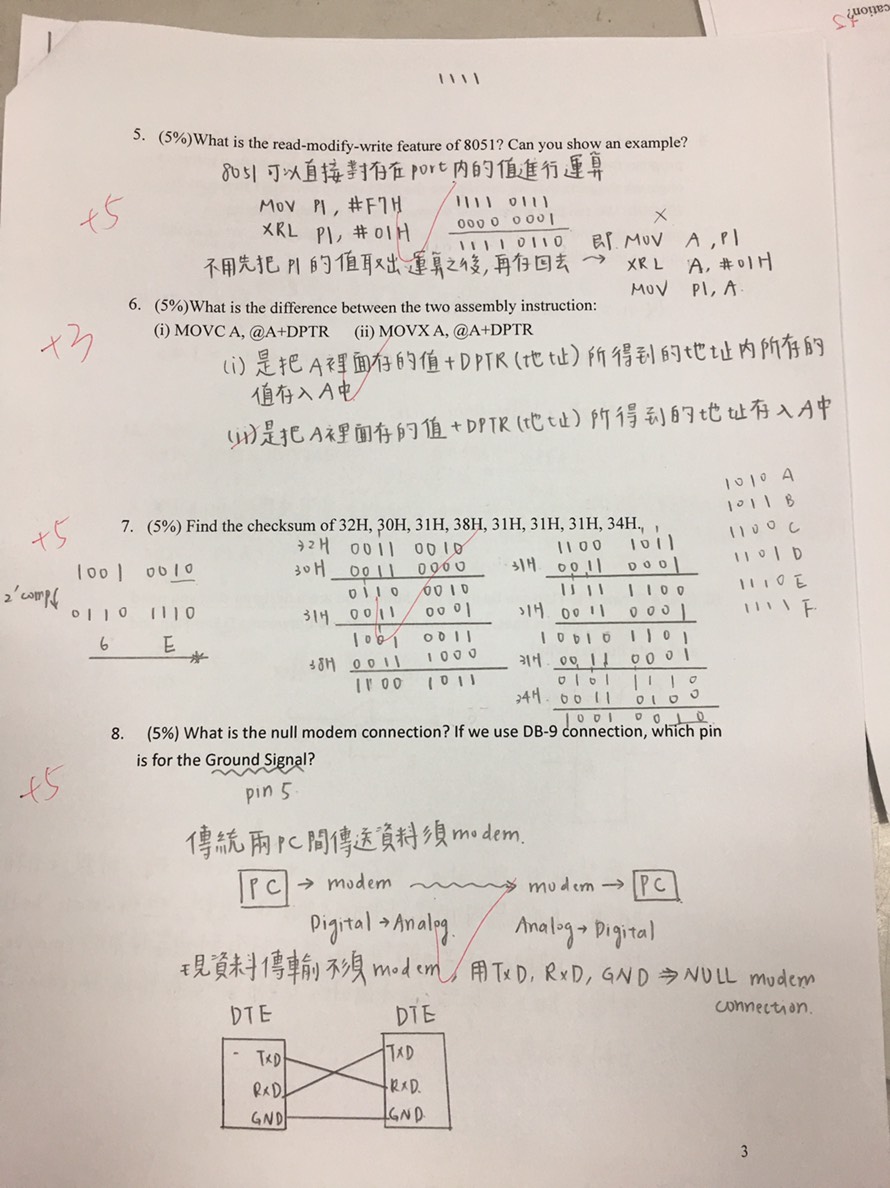 cation?
+5
1111
5. (5%)What is the read-modify-write feature of 8051? Can you show an example?
8051 可以直接對存在port內的值進行運算
+5
MOV P1, #F7H
1111 0111
XRL P1, #01H
0000 0001
1111 0110
不用先把 P1 的值取出運算之後,再存回去 →
即 MOV A, P1
XRL A, #01H
MOV P1, A
6. (5%)What is the difference between the two assembly instruction:
+3
(i) MOVC A, @A+DPTR (ii) MOVX A, @A+DPTR
(i) 是把A裡面存的值+DPTR(地址)所得到的地址內所存的
值存入A中
(ii)是把A裡面存的值+DPTR(地址)所得到的地址存入A中
7. (5%) Find the checksum of 32H, 30H, 31H, 38H, 31H, 31H, 31H, 34H.
+5
1010 A
1011 B
1100 C
1101 D
1110 E
1111 F
1001 0010
2'comp
0110 1110
6 E
32H 0011 0010
30H 0011 0000
0110 0010
31H 0011 0001
1001 0011
38H 0011 1000
1100 1011
1100 1011
31H 0011 0001
1111 1100
31H 0011 0001
10010 1101
31H 0011 0001
0101 1110
34H 0011 0100
1001 0010
8. (5%) What is the null modem connection? If we use DB-9 connection, which pin
is for the Ground Signal?
+5
pin 5
傳統兩PC間傳送資料須modem.
PC → modem → modem → PC
Digital → Analog. Analog → Digital
現資料傳輸不須modem, 用TxD, RxD, GND ⇒ NULL modem
connection.
DTE DTE
TxD TXD
RxD RxD
GND GND
3